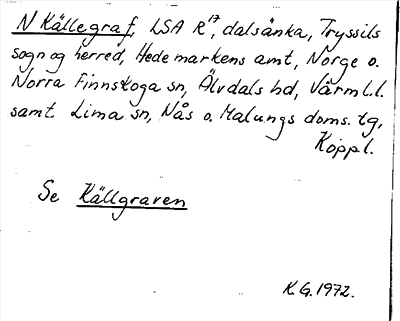 N Källegraf, LSA R17, dalsänka, Tryssils
sogn og herred, Hedemarkens amt, Norge o.
Norra Finnskoga sn, Älvdals hd, Värml.l.
samt Lima sn, Nås o. Malungs doms. tg,
Koppl.
Se Källgraven
K.G. 1972.